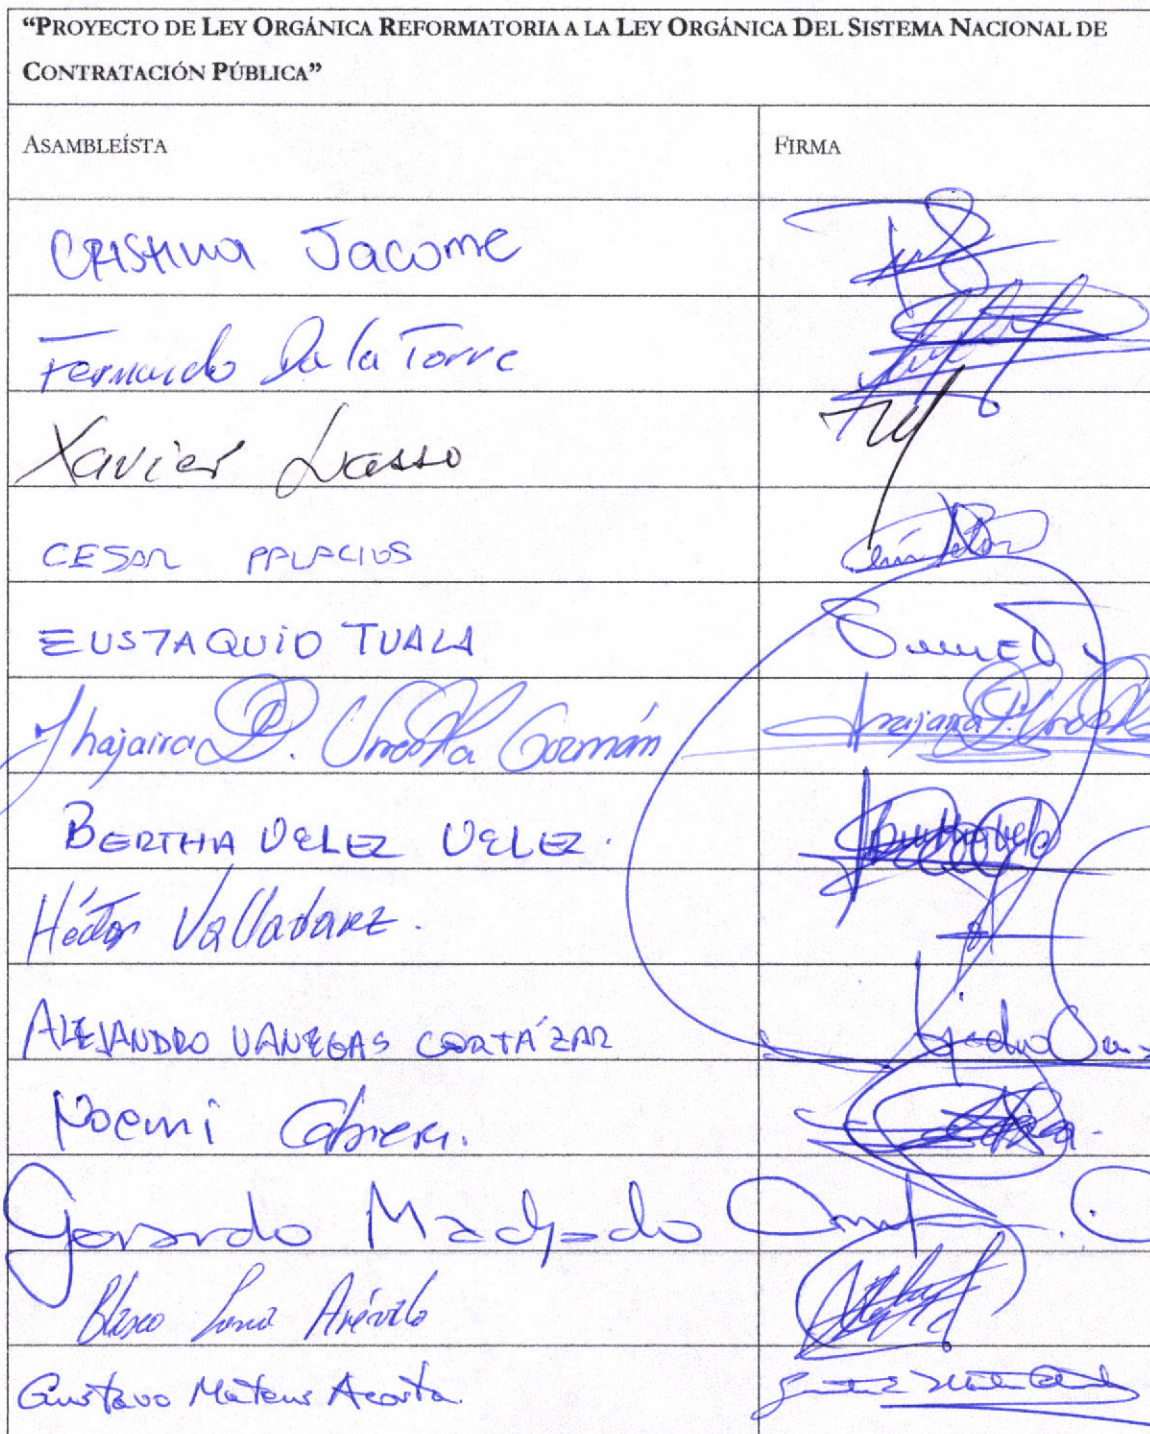 “PROYECTO DE LEY ORGÁNICA REFORMATORIA A LA LEY ORGÁNICA DEL SISTEMA NACIONAL DE
CONTRATACIÓN PÚBLICA”
ASAMBLEÍSTA FIRMA
CRISTINA Jacome
Fernando De la Torre
Xavier Lasso
CESAR PALACIOS
EUSTAQUIO TUALA
Jhajaira D. Urresta Guzmán
BERTHA VELEZ VELEZ.
Héctor Valladarez.
ALEJANDRO VANEGAS CORTÁZAR
Noemi Cabrera.
Gerardo Machado
Blasco Luna Arévalo
Gustavo Mateus Acosta.